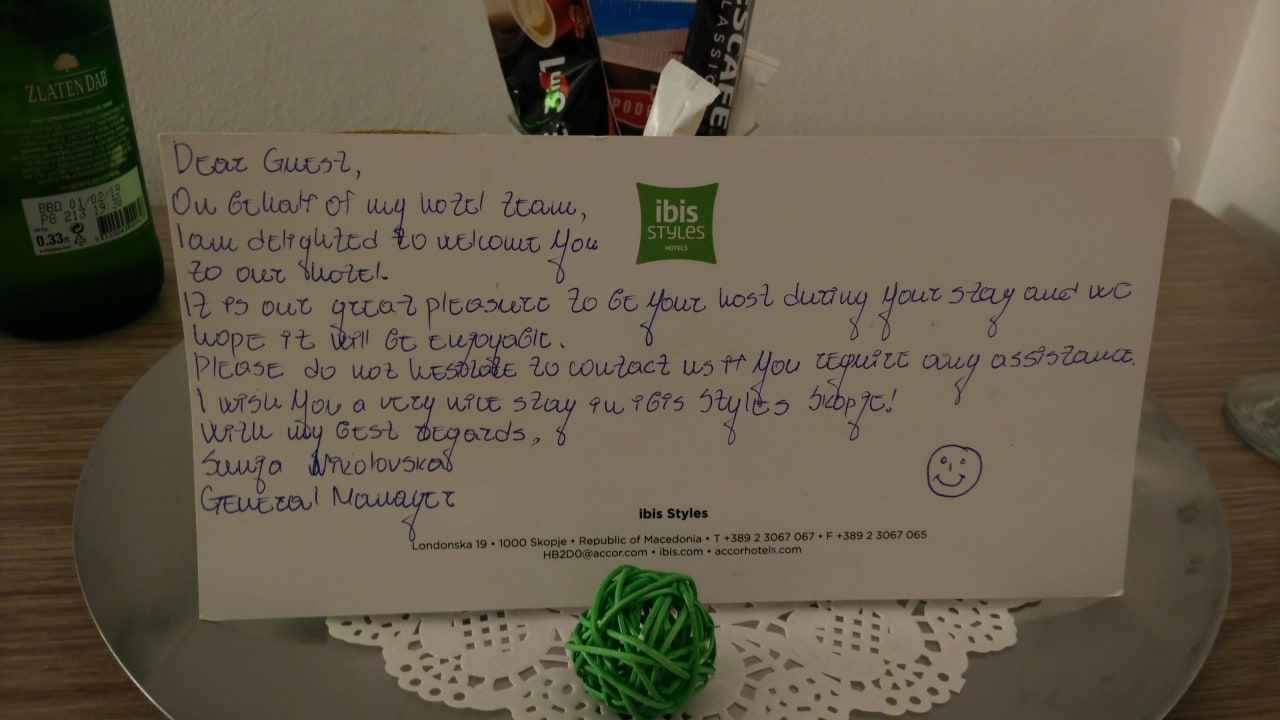 ZLATEN DAB
BBD 01/02/19
PB 213 19:30
0.33л
3in1
NESCAFÉ
CLASSIC
Dear Guest,
On behalf of my hotel team,
I am delighted to welcome you
to our hotel.
It is our great pleasure to be your host during your stay and we
hope it will be enjoyable.
Please do not hesitate to contact us if you require any assistance.
I wish you a very nice stay in ibis Styles Skopje!
With my best regards,
Sunja Nikolovska
General Manager
ibis
STYLES
HOTELS
ibis Styles
Londonska 19 • 1000 Skopje • Republic of Macedonia • T +389 2 3067 067 • F +389 2 3067 065
HB2D0@accor.com • ibis.com • accorhotels.com